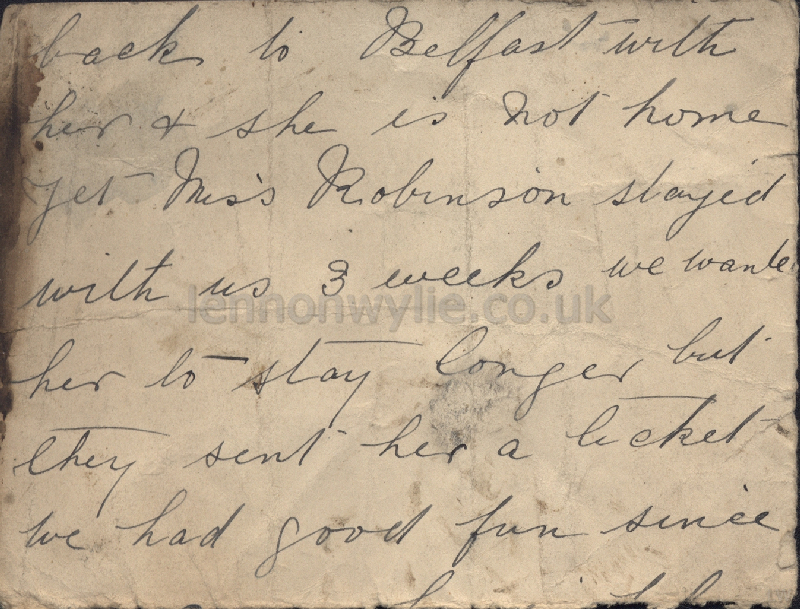 back to Belfast with
her & she is not home
yet Miss Robinson stayed
with us 3 weeks we wante
lennonwylie.co.uk
her to stay longer but
they sent her a ticket
we had good fun since